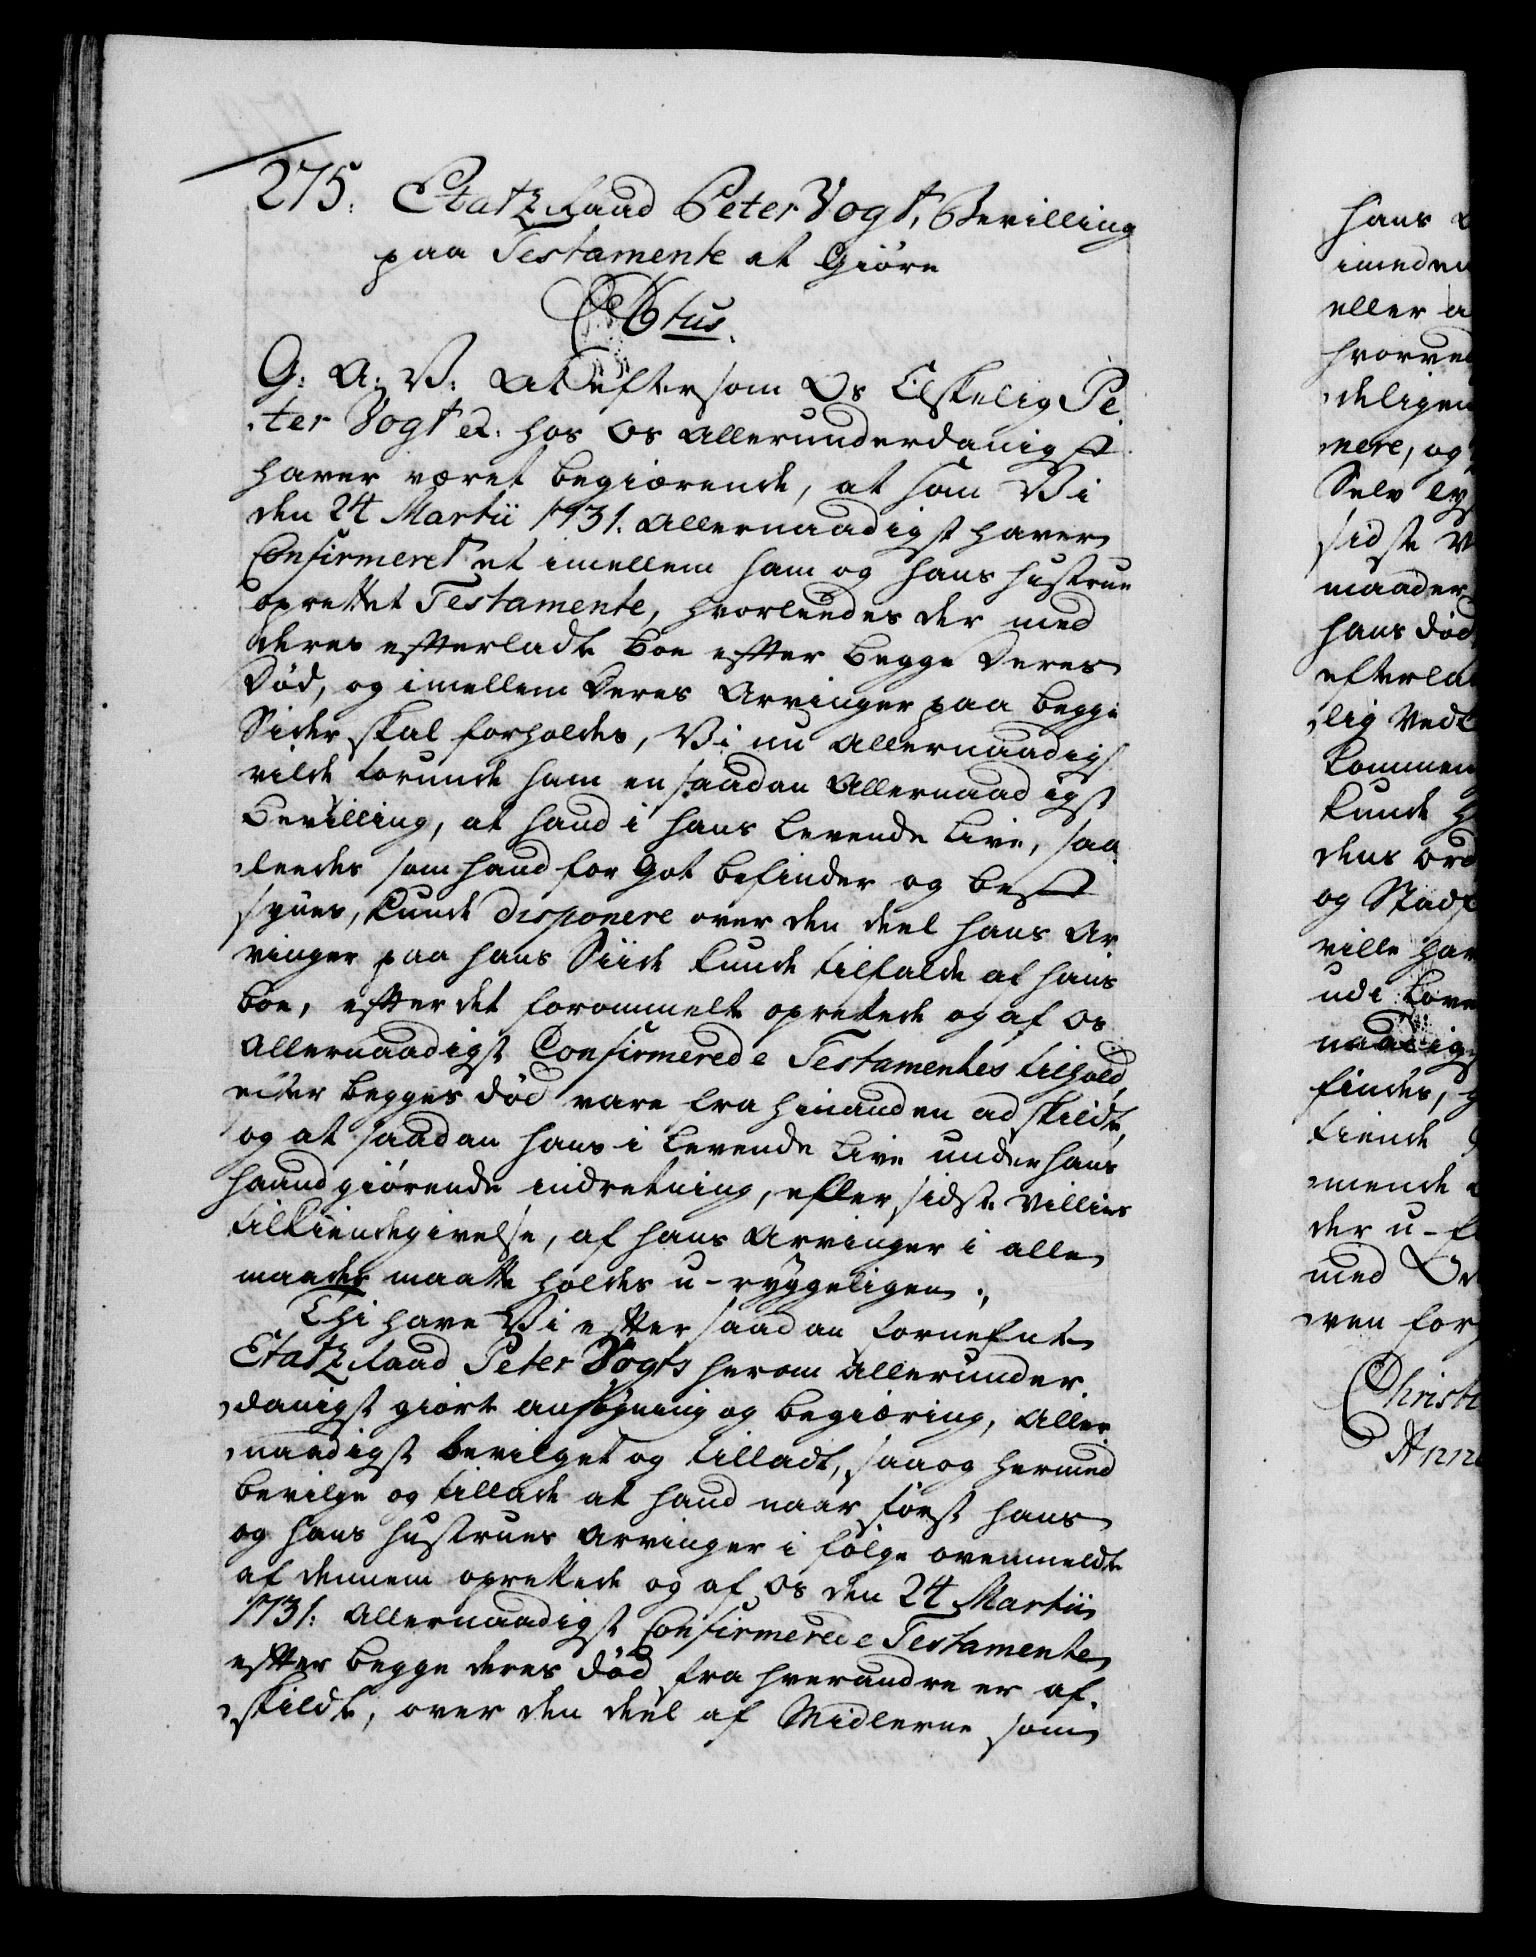 275. EtatzRaad Peter Vogt, Bevilling
paa Testamente at Giøre
C6tus.
G: A: V: At eftersom Os Elskelig Pe¬
ter Vogt etc. hos Os Allerunderdanigst
haver været begiærende, at som Vi
den 24 Martii 1731. Allernaadigst haver
Confirmeret et imellem ham og hans Hustrue
oprettet Testamente, hvorledes der med
deres efterladte Boe efter begge Deres
Død, og imellem Deres Arvinger paa begge
Sider skal forholdes, Vi nu Allernaadigst
vilde forunde ham en saadan Allernaadigst
Bevilling, at hand i hans levende Live, saa¬
ledes som hand for got befinder og best
synes, kunde disponere over den deel hans Ar¬
vinger paa hans Siide kunde tilfalde af hans
Boe, efter det forommelte oprettede og af Os
Allernaadigst Confirmerede Testamentes tilhold,
efter begges død vare fra hinanden adskildt,
og at saadan hans i levende Live under hans
haand giørende indretning, eller sidste Villies
tilkiendegivelse, af hans Arvinger i alle
maader maatte holdes u-ryggeligen.,
Thi have Vi efter saadan fornefnte
EtatzRaad Peter Vogts herom Allerunder¬
danigst giorte ansøgning og begiæring, Aller¬
naadigst bevilget og tilladt, saa og hermed
bevilge og tillade at hand naar først hans
og hans Hustrues Arvinger i følge ovenmeldte
af dennem oprettede og af Os den 24 Martii
1731. Allernaadigst Confirmerede Testamente
efter begge deres død fra hverandre er af¬
skildt, over den deel af Midlerne som
hans
imeden
eller
hvorved
deligen
nere, og
Selv
sidste
maader
hans død
efterlad
lig Ved
kommen
kunde
dens ord
og Stadf
ville hav
udi
naadigst
findes,
tiende
mende
der u-
med
ven for
Christ
Anno